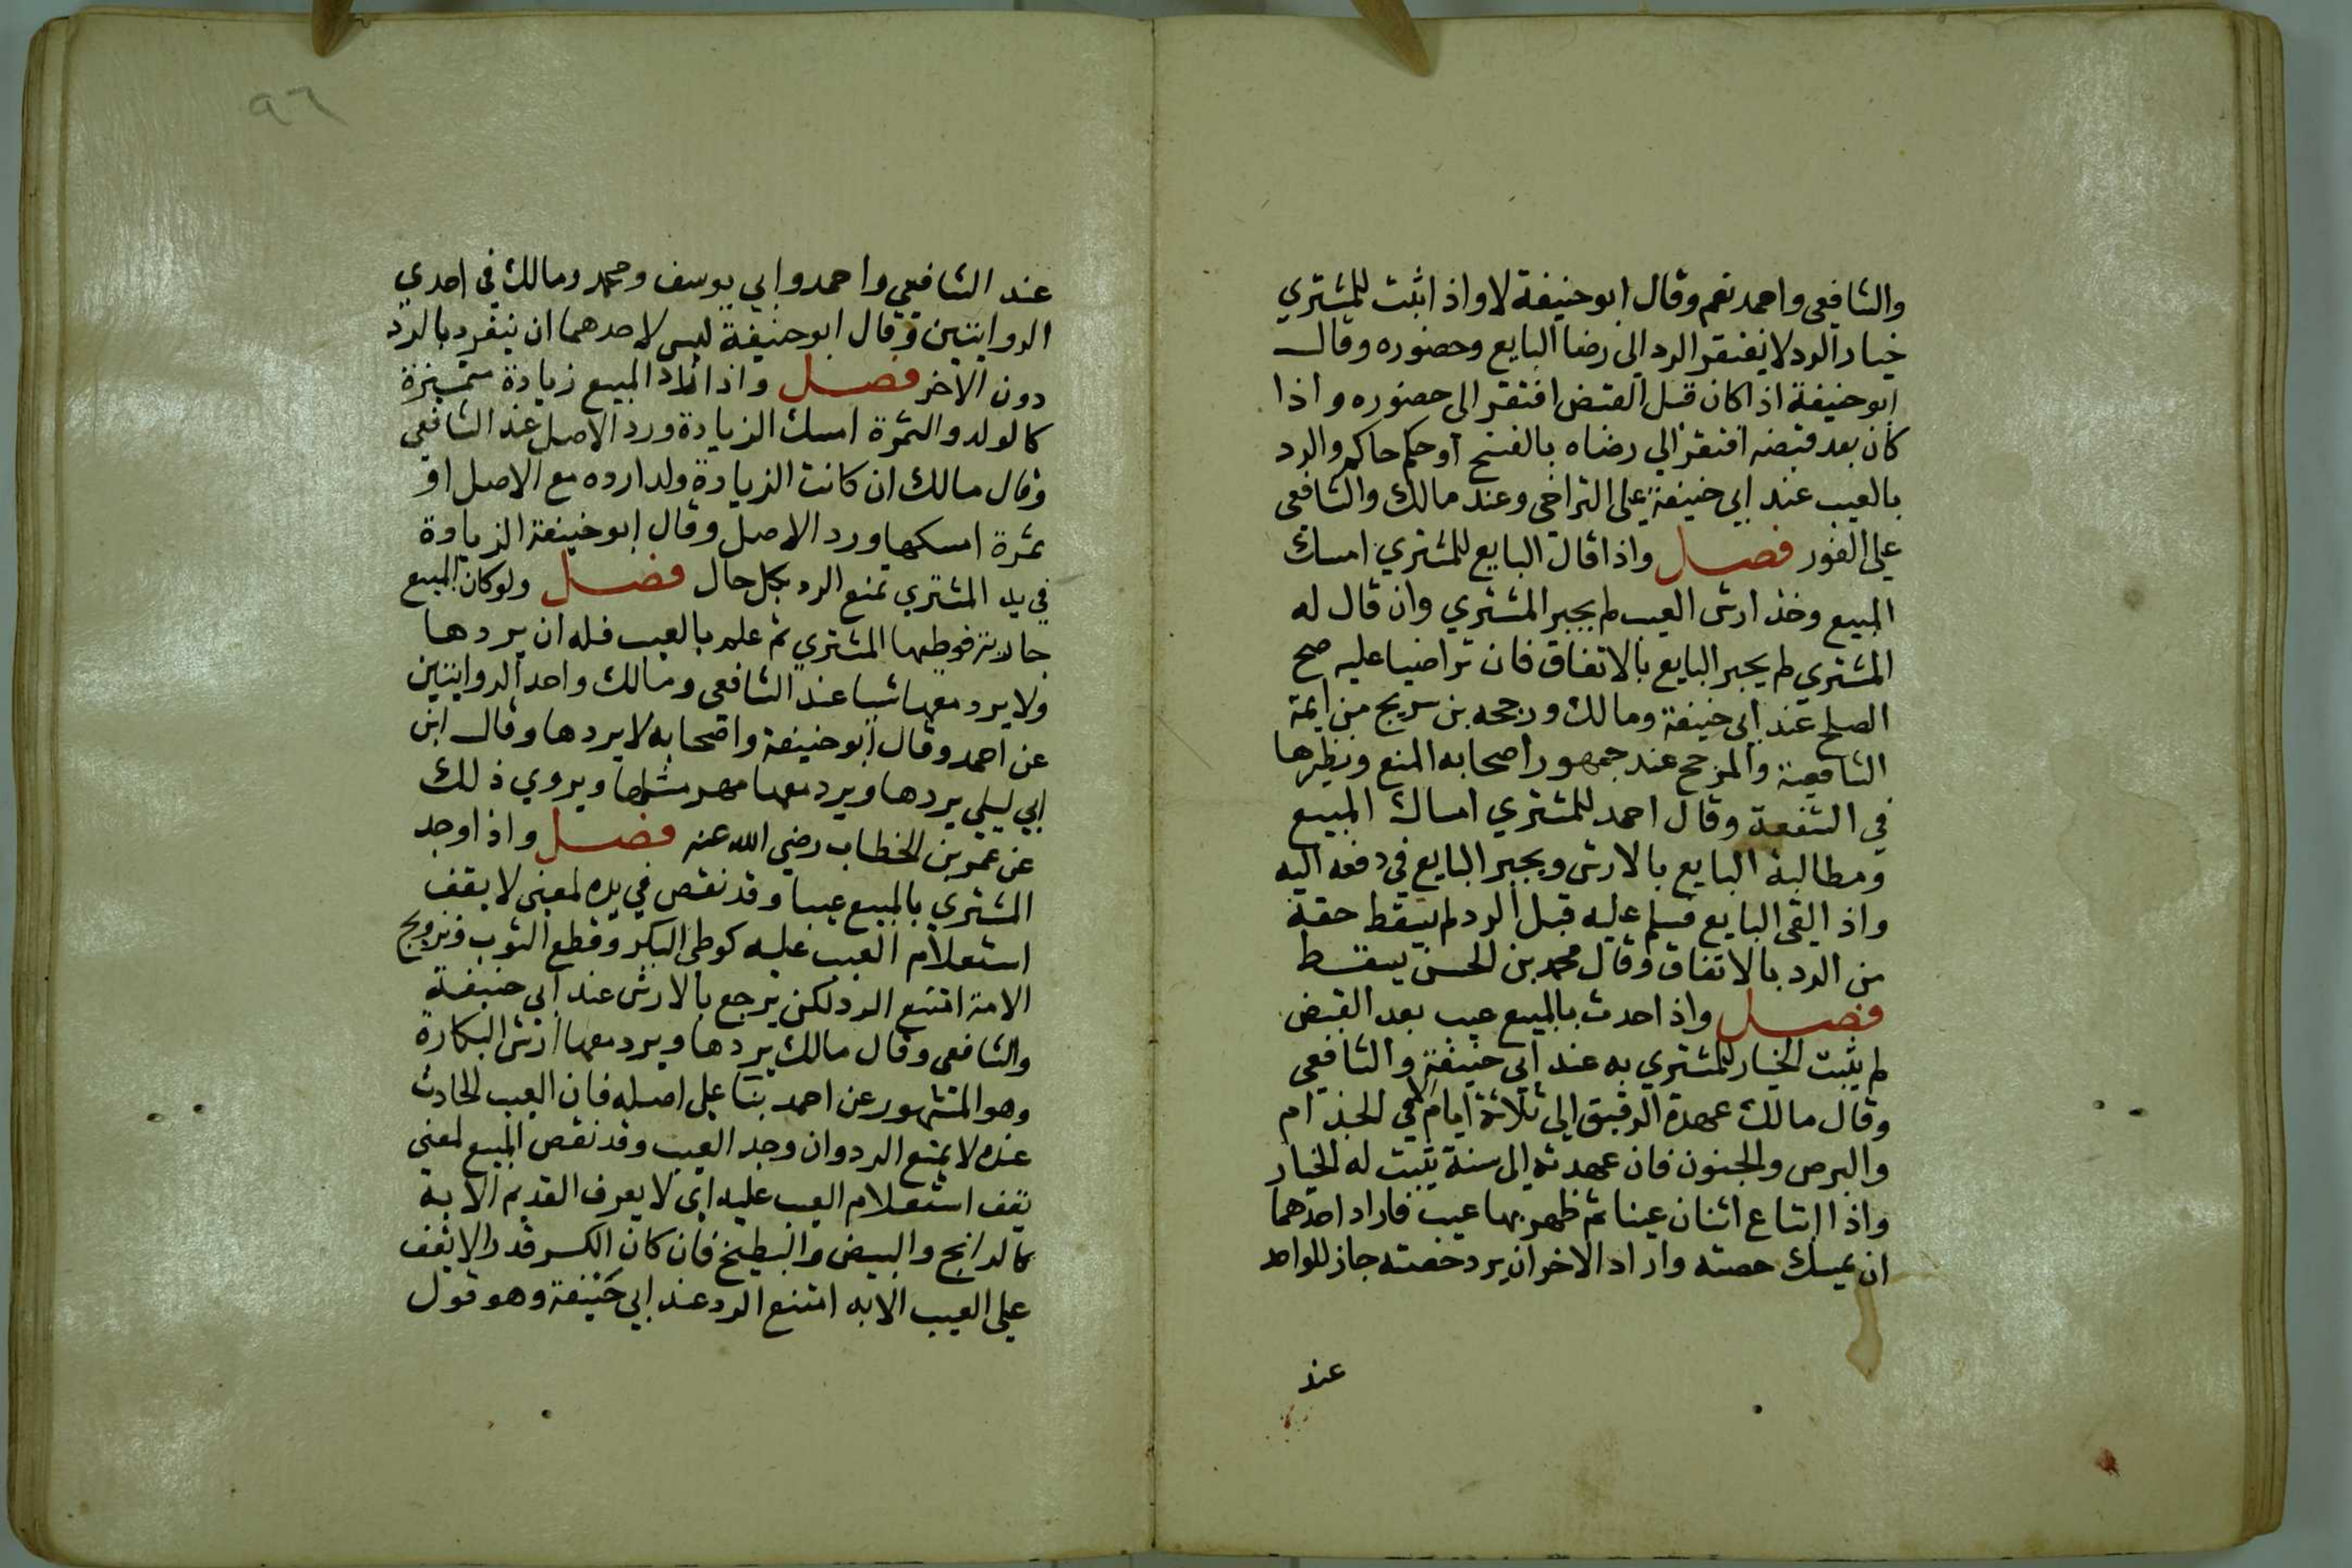 والشافعي واحمد نعم وقال ابو حنيفة لا واذ اثبت للمشتري
خيار الرد لا يفتقر الرد الى رضا البايع وحضوره وقال
ابو حنيفة اذا كان قبل القبض افتقر الى حضوره واذا
كان بعد قبضه افتقر الي رضاه بالفسخ او حكم حاكم والرد
بالعيب عند ابي حنيفة على التراخي وعند مالك والشافعي
على الفور فصل واذا قال البايع للمشتري امسك
المبيع وخذ ارش العيب لم يجبر المشتري وان قال له
المشتري لم يجبر البايع بالاتفاق فان تراضيا عليه صح
الصلح عند ابي حنيفة ومالك ورجحه بن سريج من ايمة
الشافعية والمرجح عند جمهور اصحابه المنع ونظيرها
في الشفعة وقال احمد للمشتري امساك المبيع
ومطالبة البايع بالارش ويجبر البايع في دفعه اليه
واذ القى البايع فسلم عليه قبل الرد لم يسقط حقه
من الرد بالاتفاق وقال محمد بن الحسن يسقط
فصل واذ احدث بالمبيع عيب بعد القبض
لم يثبت الخيار للمشتري به عند ابي حنيفة والشافعي
وقال مالك عهدة الرقيق الى ثلاثة ايام الا في الجذام
والبرص والجنون فان عهدته الى سنة يثبت له الخيار
واذا ابتاع اثنان عينا ثم ظهر بها عيب فاراد احدهما
ان يمسك حصته واراد الاخر ان يرد حصته جاز للواحد
عند
٩٦
عند الشافعي واحمد وابي يوسف ومحمد ومالك في احدي
الروايتين وقال ابو حنيفة ليس لاحدهما ان ينفرد بالرد
دون الاخر فصل واذا زاد المبيع زيادة متميزة
كالولد والثمرة امسك الزيادة ورد الاصل عند الشافعي
وقال مالك ان كانت الزيادة ولدا رده مع الاصل او
ثمرة امسكها ورد الاصل وقال ابو حنيفة الزيادة
في يد المشتري تمنع الرد بكل حال فصل ولو كان المبيع
جارية فوطيها المشتري ثم علم بالعيب فله ان يردها
ولا يرد معها شيا عند الشافعي ومالك واحد الروايتين
عن احمد وقال ابو حنيفة واصحابه لا يردها وقال ابن
ابي ليلي يردها ويرد معها مهر مثلها ويروي ذلك
عن عمر بن الخطاب رضي الله عنه فصل واذا وجد
المشتري بالمبيع عيبا وقد نقص في يده لمعنى لا يقف
استعلام العيب عليه كوطئ البكر وقطع الثوب وتزويج
الامة امتنع الرد لكن يرجع بالارش عند ابي حنيفة
والشافعي وقال مالك يردها ويرد معها ارش البكارة
وهو المشهور عن احمد بنا على اصله فان العيب الحادث
عنده لا يمنع الرد وان وجد العيب وقد نقص المبيع لمعنى
يقف استعلام العيب عليه اي لا يعرف القديم الا به
كالرانج والبيض والبطيخ فان كان الكسر قدرا لا يقف
على العيب الا به امتنع الرد عند ابي حنيفة وهو قول